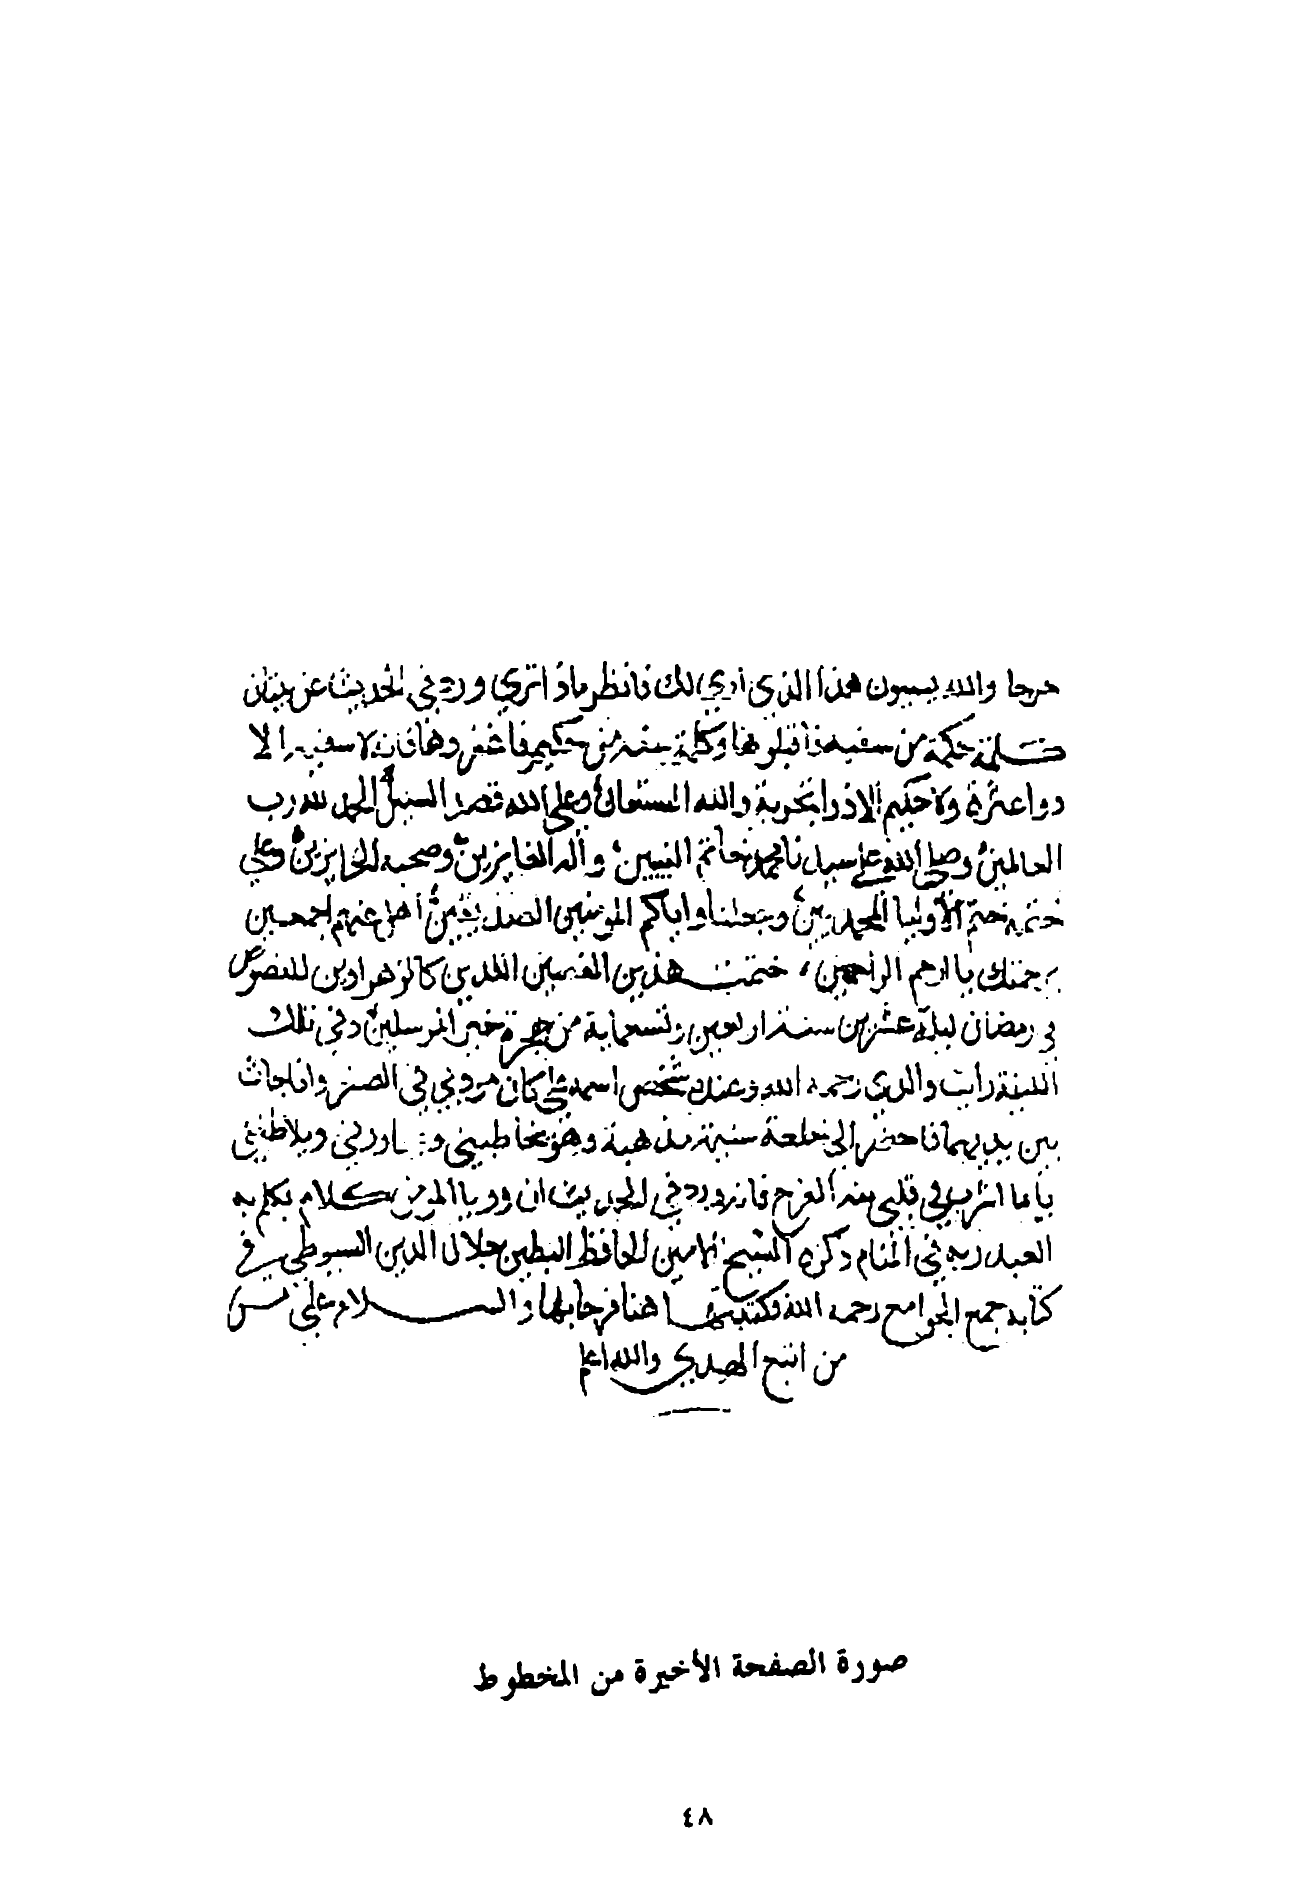 حرجا والله يسيرون هذا الذي أدي لك فانظر ماذا ترى ورد في الحديث عن
كلمة حكمة من سفيه فاقبلوها وكلمة سفه من حكيم فاغفروها فانه لا سفيه الا
ذو اعثرة ولا حكيم الا ذو تجربة والله المستعان وعلى الله قصد السبيل الحمد لله رب
العالمين وصلى الله على سيدنا محمد خاتم النبيين وآله الفايزين وصحبه الحايزين وعلى
ختمه ختم الأوليا المحمديين وجعلنا واياكم المومنين الصديقين عنهم اجمعين
برحمتك يا ارحم الراحمين ختمت هذين اللذين كالزهراوين للنصوص
في رمضان ليلة عشرين سنة اربعين وتسعماية من هجرة خير المرسلين وفي تلك
الليلة رايت والدي رحمه الله وعنده شخص اسمه علي كان في الصغر وانا جاث
بين يديهما فاحضر الي خلعة سنية مذهبة وهو يخاطبني ويلاطفني
يا ما في قلبي الفرح فانه ورد في الحديث ان رويا المومن كلام يكلم به
العبد ربه في المنام ذكره الشيخ الامين الحافظ جلال الدين السيوطي في
كتابه جمع الجوامع رحمه الله فكتبتها هنا فرحا بها والسلام على من
من اتبع الهدى والله اعلم
صورة الصفحة الأخيرة من المخطوط
٤٨